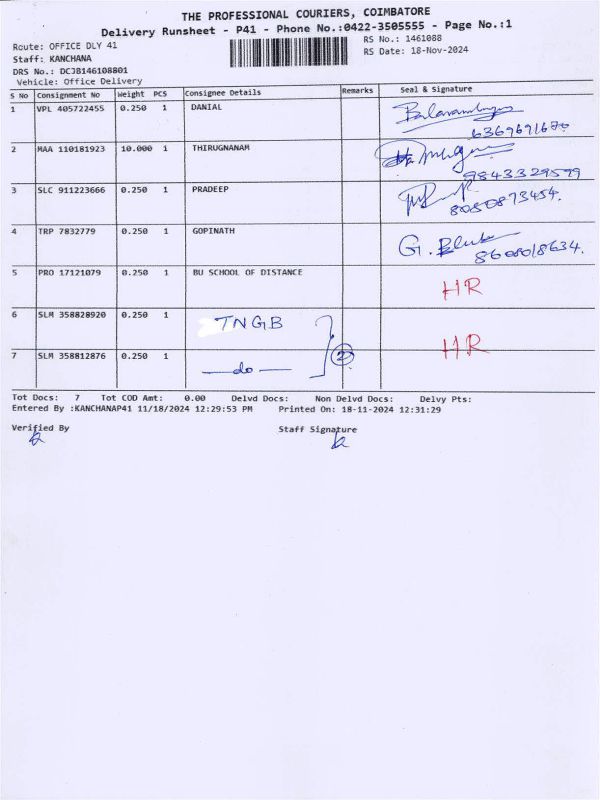 THE PROFESSIONAL COURIERS, COIMBATORE
Delivery Runsheet - P41 - Phone No.:0422-3505555 - Page No.:1
Route: OFFICE DLY 41 RS No.: 1461088
Staff: KANCHANA RS Date: 18-Nov-2024
DRS No.: DCJB146108801
Vehicle: Office Delivery
S No Consignment No Weight PCS Consignee Details Remarks Seal & Signature
1 VPL 405722455 0.250 1 DANIAL
6369691670
2 MAA 110181923 10.000 1 THIRUGNANAM
9843329579
3 SLC 911223666 0.250 1 PRADEEP
8050873454.
4 TRP 7832779 0.250 1 GOPINATH
8608018634.
5 PRO 17121079 0.250 1 BU SCHOOL OF DISTANCE
HR
6 SLM 358828920 0.250 1 TNGB
HR
7 SLM 358812876 0.250 1 —do— 2
Tot Docs: 7 Tot COD Amt: 0.00 Delvd Docs: Non Delvd Docs: Delvy Pts:
Entered By :KANCHANAP41 11/18/2024 12:29:53 PM Printed On: 18-11-2024 12:31:29
Verified By Staff Signature